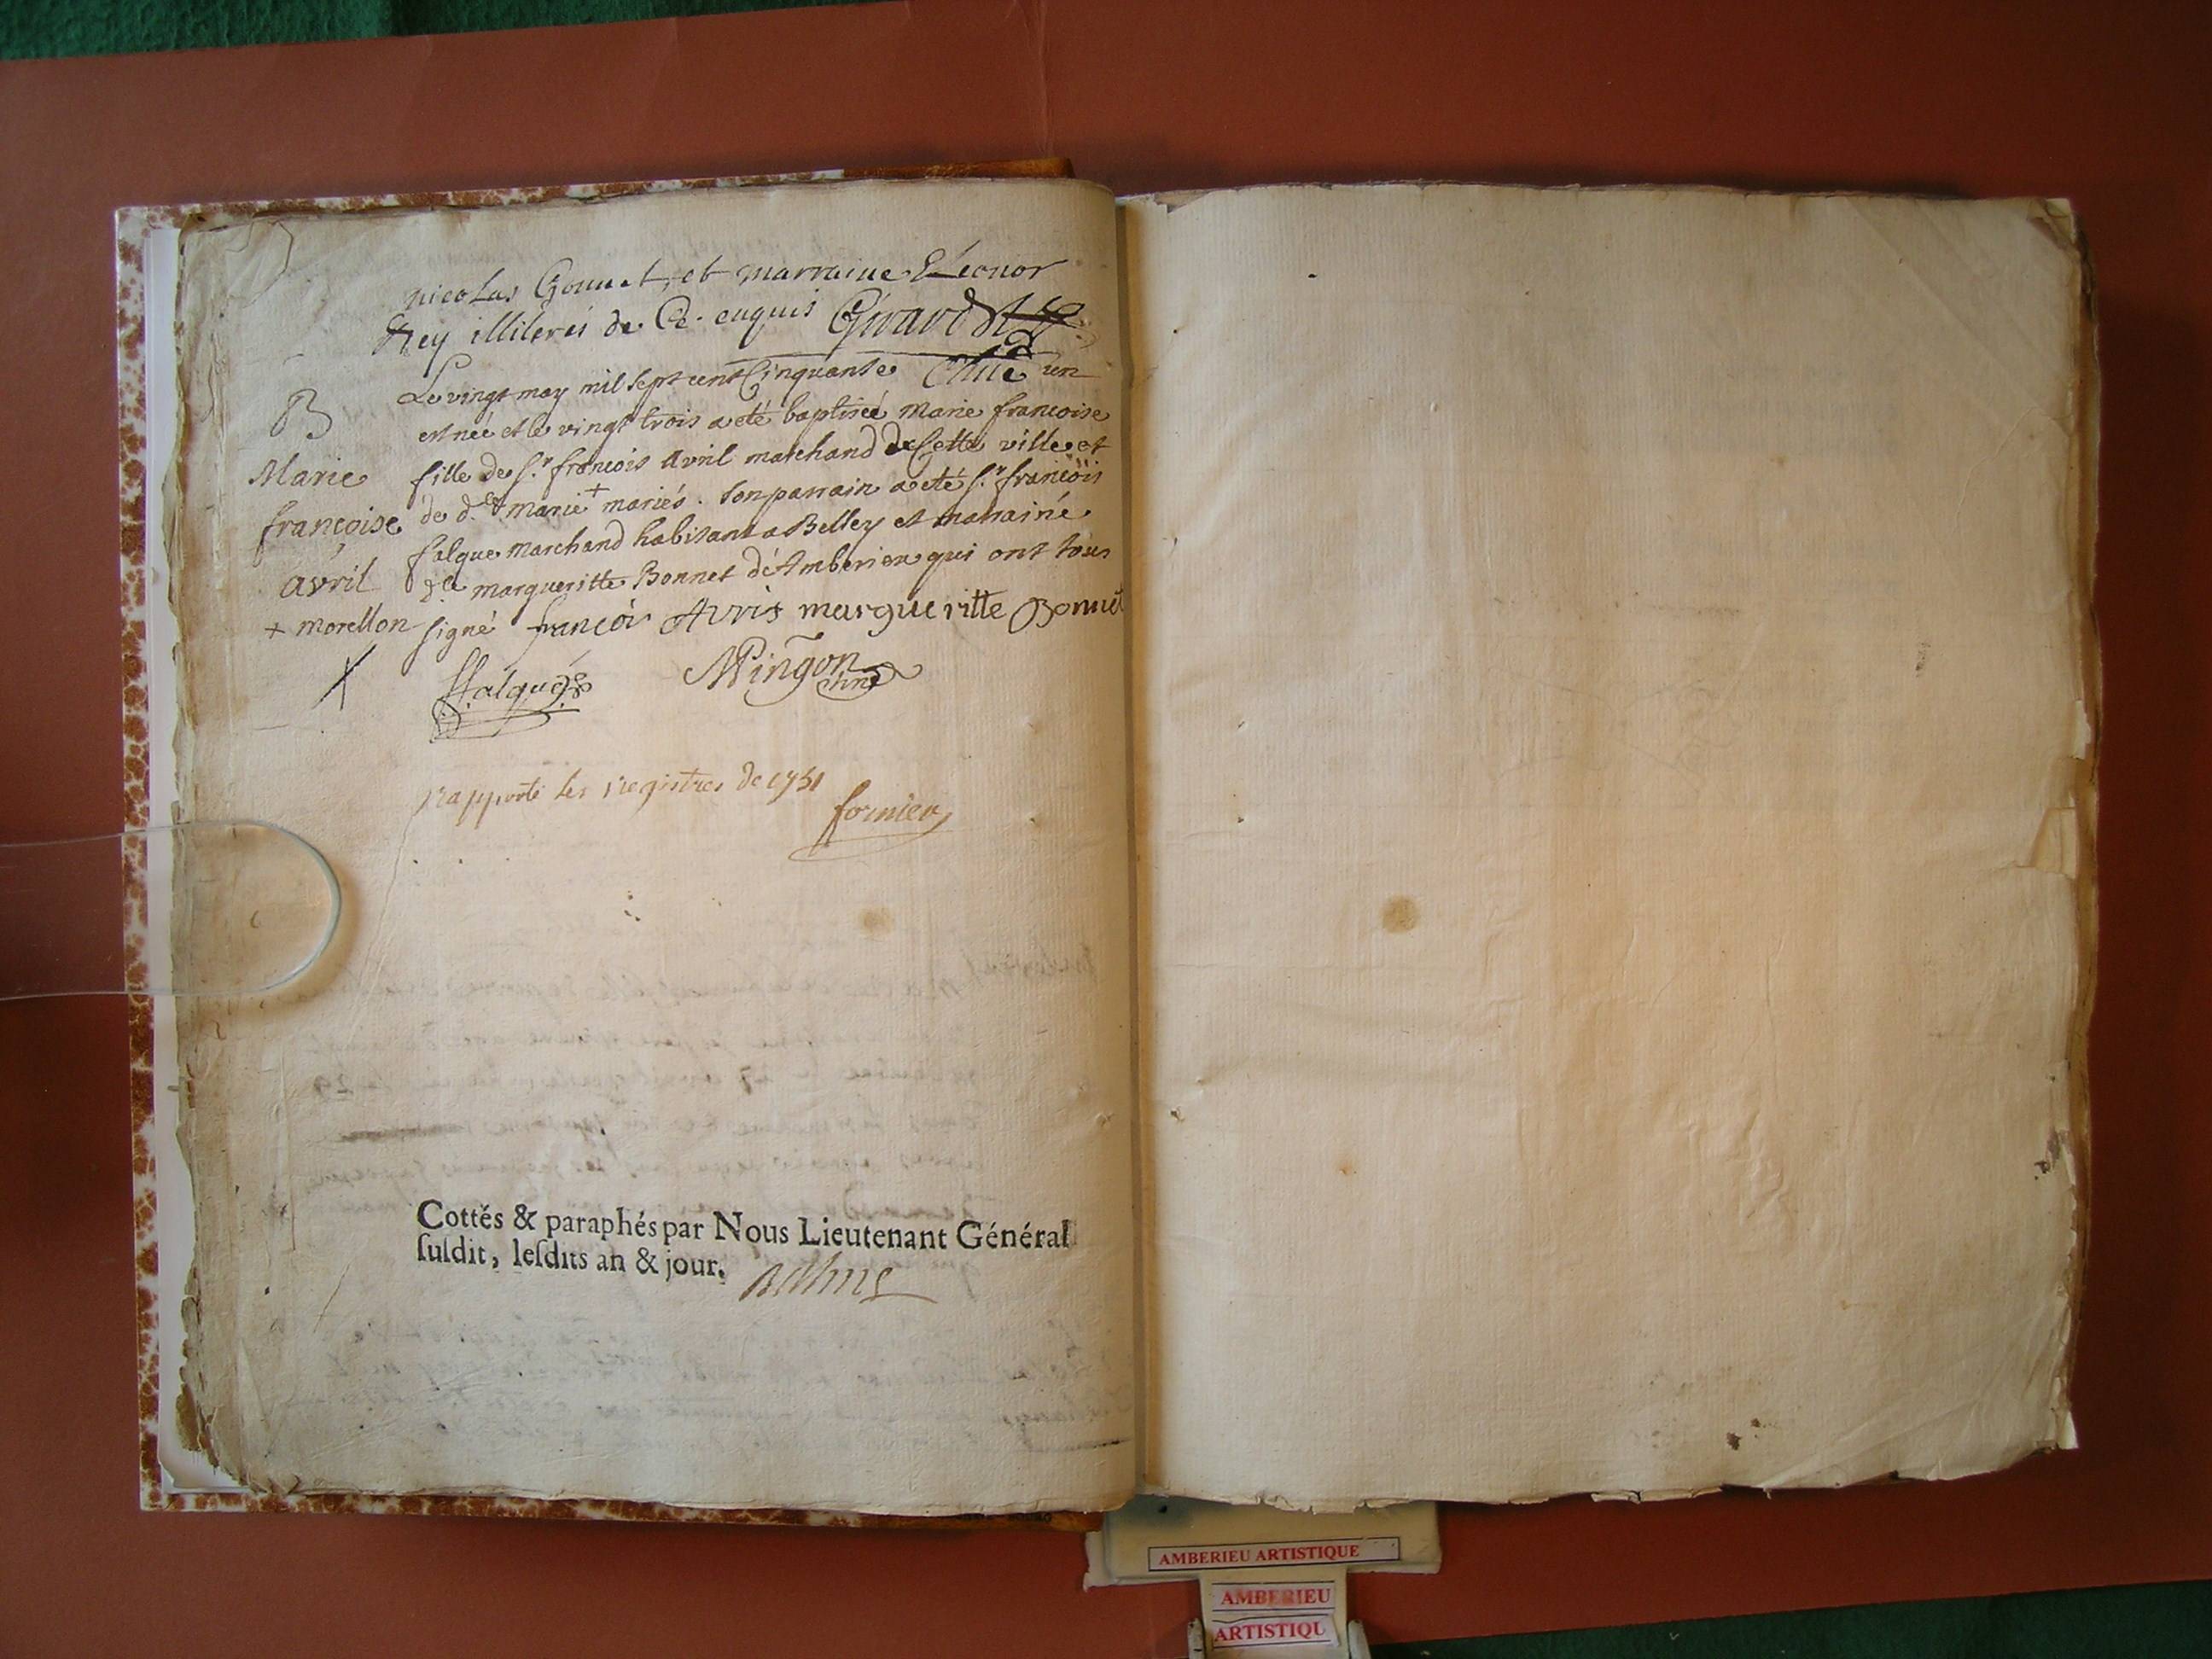 nicolas Gonnet, et marraine Eléonor
Rey illiterés de Ce. enquis Girard
B
Marie
françoise
avril
+ morellon
Le vingt may mil sept cent Cinquante un
est née et le vingt trois a eté baptisée Marie francoise
fille de s.r francois avril marchand de Cette ville et
de d.lle marie + mariés. son parrain a eté s.r francois
falque marchand habitant a Belley et marraine
d.lle margueritte Bonnet d'Amberieu qui ont tous
signé françois Avris margueritte Bonnet
ffalque Mingon
rapporté les registres de 1751
fornier
Cottés & paraphés par Nous Lieutenant Général
susdit, lesdits an & jour.
AMBERIEU ARTISTIQUE
AMBERIEU
ARTISTIQU